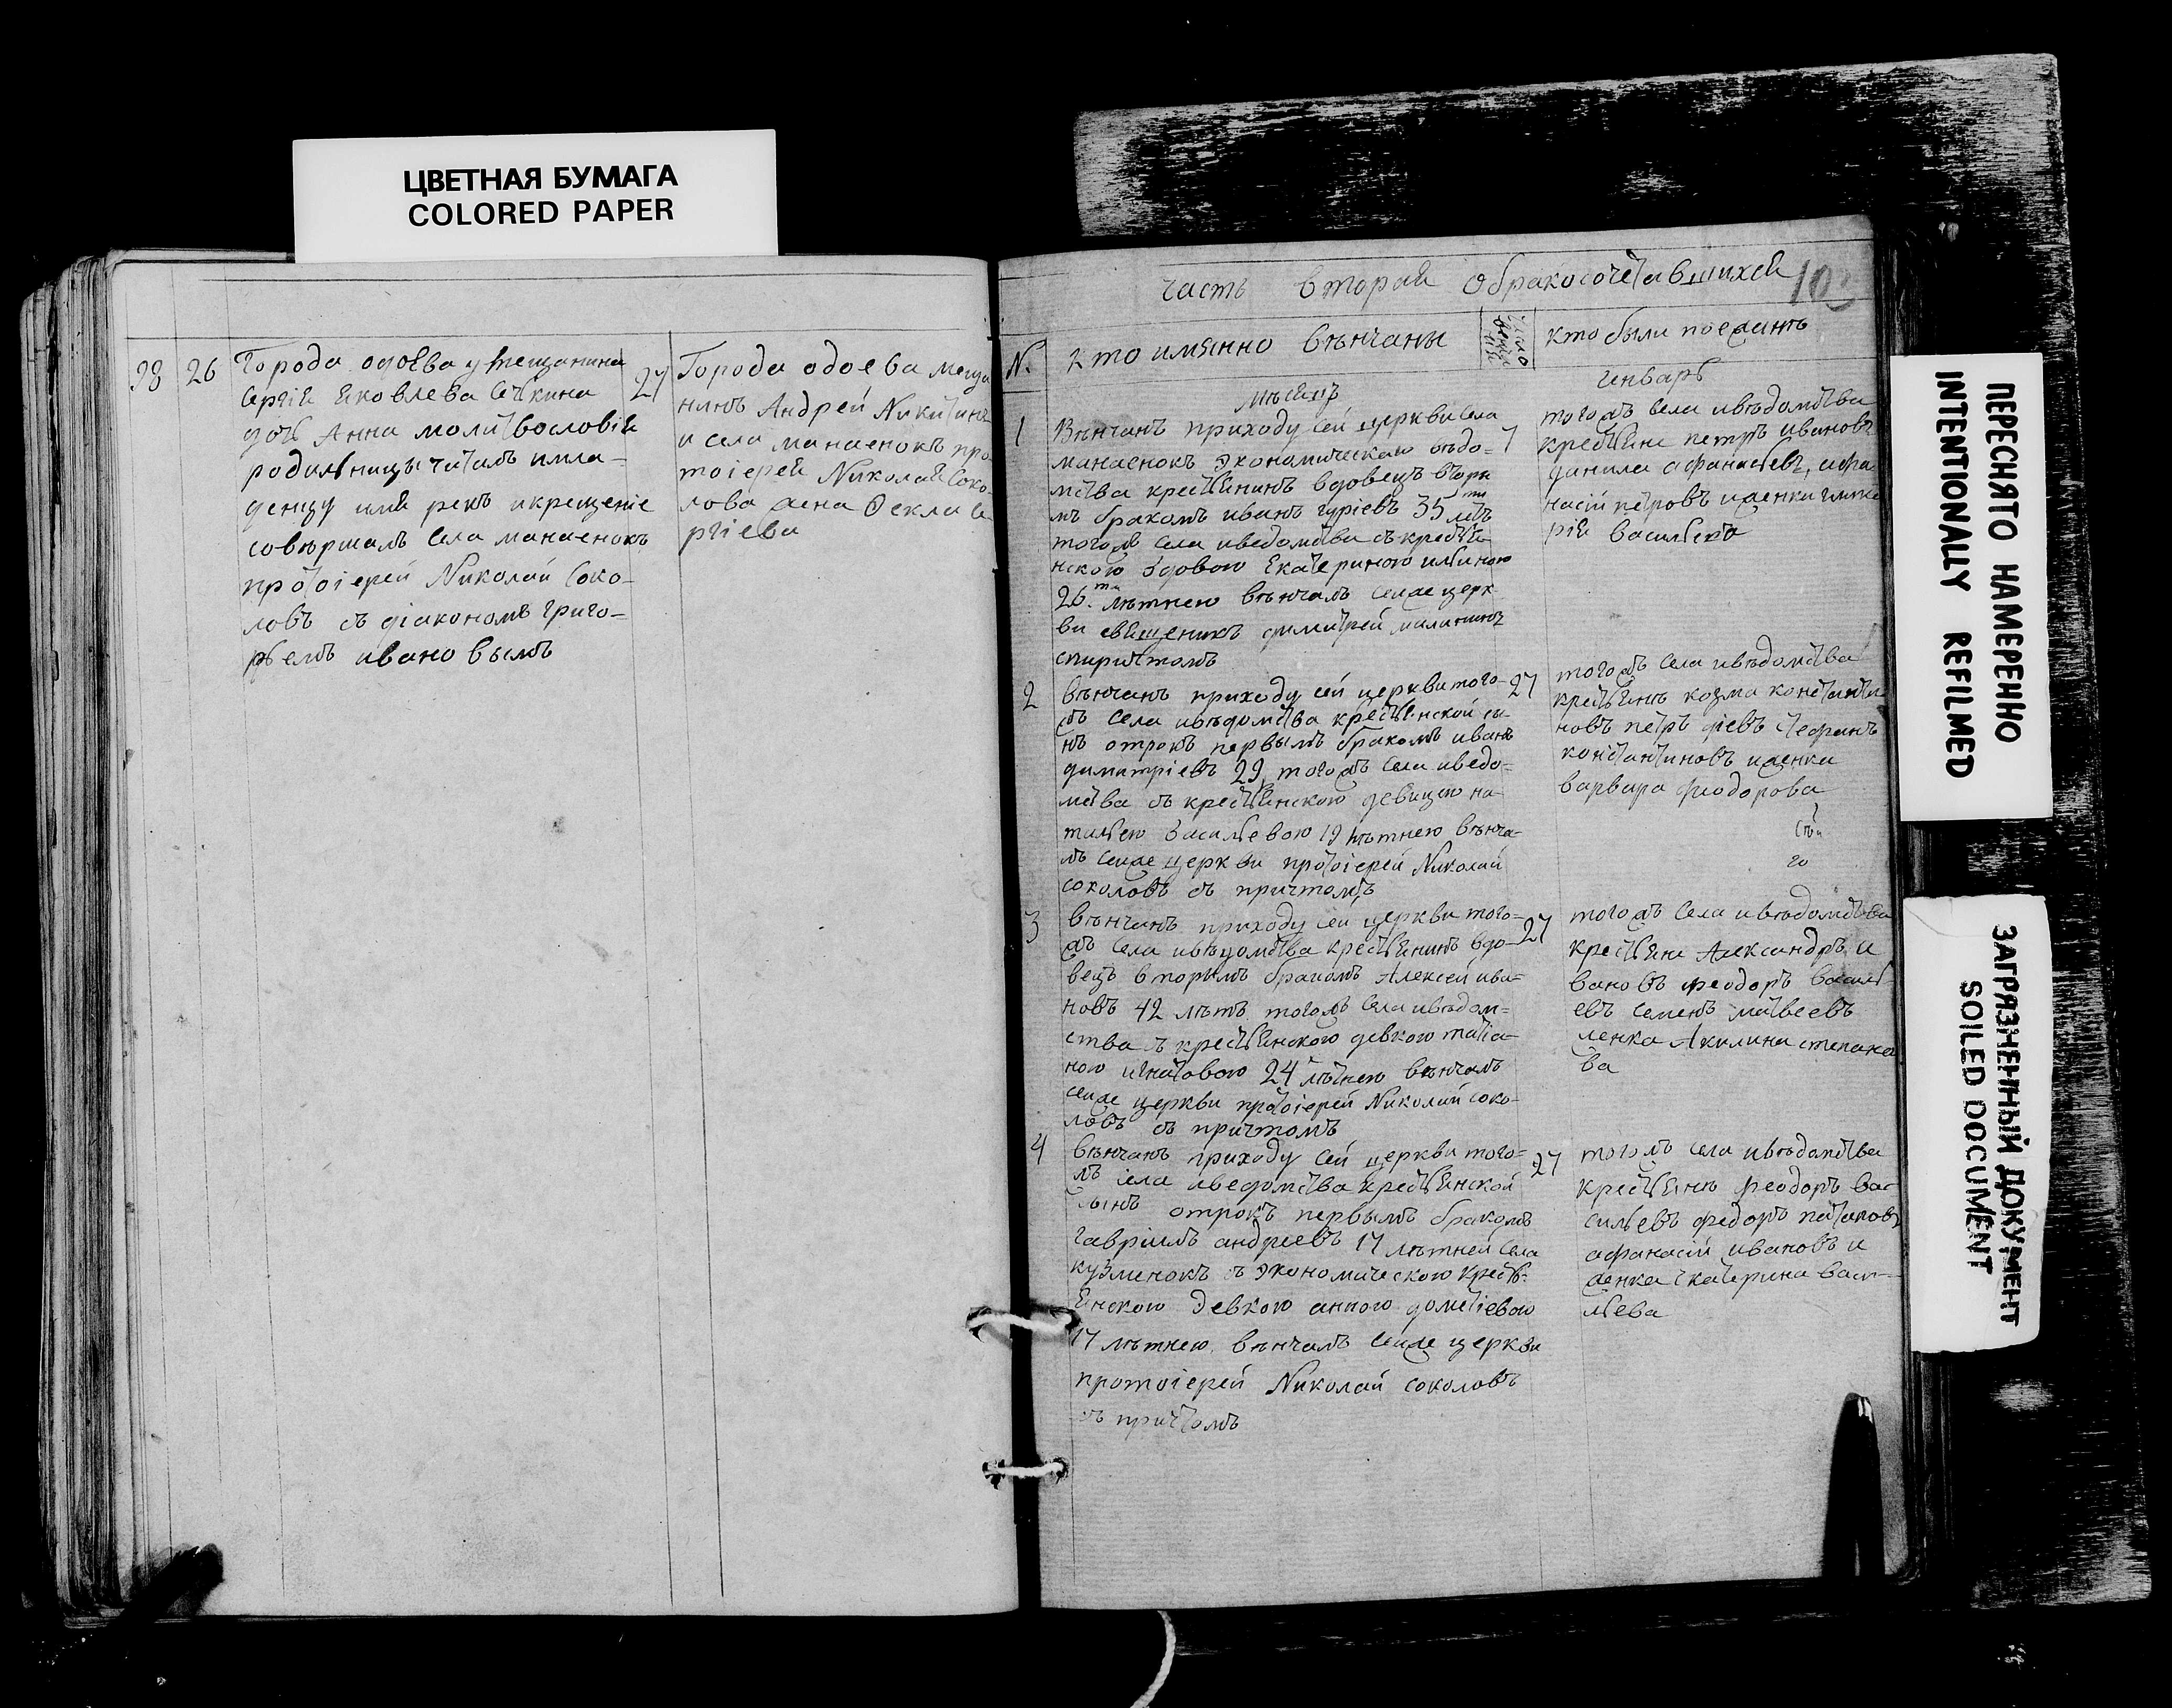 ЦВЕТНАЯ БУМАГА
COLORED PAPER
98 26 Города одоева у мещанина
Сергія Яковлева Сечкина
дочь Анна молитвословія
родильницы читалъ имла-
денцу имя рекъ икрещеніе
совершалъ села манаенокъ
протоіерей Николай Соко-
ловъ съ діакономъ Григо-
рьемъ ивановымъ
27 Города одоева меща
нинъ Андрей Никитинъ
и села манаенокъ про
тоіерей Николая Соко-
лова жена Өекла Се
ргіева
часть вторая обракосочетавшихся
№ кто имянно вѣнчаны число вѣнчанія кто были поезжанѣ
мѣсяцъ генварь
1 Вѣнчанъ приходу сей церкви села 7
манаенокъ экономическаго вѣдо-
мства крестьянинъ вдовецъ вторы
мъ бракомъ иванъ гуріевъ 35 ти летъ
тогожъ села иведомства съ крестья
нскою вдовою Екатериною ильиною
26 ти лѣтнею вѣнчалъ сеяже церк
ви священикъ димитрей малининъ
спричтомъ
тогожъ села ивѣдомства
крестьяне петръ ивановъ
данила афанасьевъ, афа
насій петровъ иженка глике
рія васильева
2 вѣнчанъ приходу сей церкви того- 27
жъ села ивѣдомства крестьянской сы-
нъ отрокъ первымъ бракомъ иванъ
димитріевъ 29, тогожъ села иведо-
мства съ крестьянскою девицею на
тальею васильевою 19 лѣтнею вѣнча-
лъ сеяже церкви протоіерей Николай
соколовъ съ причтомъ
тогожъ села ивѣдомства
крестьянъ козма константи
новъ петръ Стефанъ
константиновъ иженка
варвара феодорова
3 вѣнчанъ приходу сей церкви того- 27
жъ села ивѣдомства крестьянинъ вдо-
вецъ вторымъ бракомъ Алексей ива-
новъ 42 лѣтъ тогожъ села ивѣдом-
ства съ крестьянскою девкою татіа-
ною игнатовою 24 лѣтнею вѣнчалъ
сеяже церкви протоіерей Николай соко-
ловъ съ причтомъ
тогожъ села ивѣдомства
крестьяне Александръ и
вановъ феодоръ василь
евъ семенъ матвеевъ
женка Акилина степано
ва
4 вѣнчанъ приходу сей церкви того- 27
жъ села иведомства крестьянской
сынъ отрокъ первымъ бракомъ
гавріилъ андреевъ 17 лѣтней села
кузменокъ съ экономическою кресть-
янскою девкою анною дометіевою
17 лѣтнею. вѣнчалъ сеяже церкви
протоіерей Николай соколовъ
съ причтомъ
тогожъ села ивѣдомства
крестьянъ феодоръ вас
сильевъ федоръ потаповъ
афанасій ивановъ и
женка екатерина васи-
льева
ПЕРЕСНЯТО НАМЕРЕННО
INTENTIONALLY REFILMED
ЗАГРЯЗНЕННЫЙ ДОКУМЕНТ
SOILED DOCUMENT